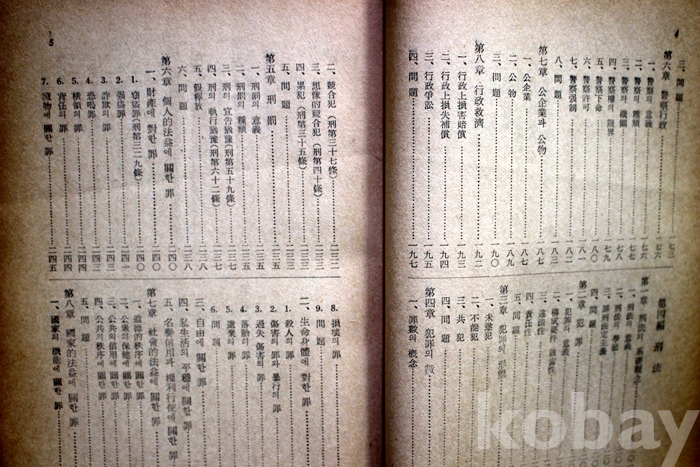 4
三. 問題
第六章 警察行政
一. 警察의 意義
二. 警察의 種類
三. 警察의 機關
四. 警察權의 限界
五. 警察下命
六. 警察許可
七. 警察强制
八. 問題
第七章 公企業과 公物
一. 公企業
二. 公物
三. 問題
第八章 行政救濟
一. 行政上損害賠償
二. 行政上損失補償
三. 行政爭訟 一九五
四. 問題 一九七
第四編 刑法
第一章 刑法의 基礎觀念
一. 刑法의 意義
二. 刑法의 學派
三. 罪刑法定主義
四. 問題
第二章 犯罪
一. 犯罪의 意義
二. 構成要件該當性
三. 違法性
四. 責任性
五. 問題
第三章 犯罪의 形態
一. 未遂犯
二. 不能犯
三. 共犯
四. 問題
第四章 犯罪의 數
一. 罪數의 概念
5
二. 競合犯(刑第三十七條) 二三二
三. 想像的競合犯(刑第四十條)
四. 累犯(刑第三十五條)
五. 問題
第五章 刑罰
一. 刑罰의 意義
二. 刑罰의 種類
三. 刑의 宣告猶豫(刑第五十九條)
四. 刑의 執行猶豫(刑第六十二條)
五. 假釋放
六. 問題
第六章 個人的法益에 關한 罪 二四〇
一. 財產에 對한 罪 二四〇
1. 竊盜罪(刑第三二九條) 二四〇
2. 强盜罪
3. 詐欺의 罪
4. 恐喝罪
5. 橫領의 罪 二四四
6. 背任의 罪 二四四
7. 贓物에 關한 罪 二四五
8. 損壞의 罪
9. 問題
二. 生命身體에 對한 罪
1. 殺人의 罪
2. 傷害의 罪와 暴行의 罪
3. 過失傷害의 罪
4. 落胎의 罪
5. 遺棄의 罪
6. 問題
三. 自由에 關한 罪
四. 私生活의 平穩에 關한 罪
五. 名譽信用과 權利行使에 關한 罪
第七章 社會的法益에 關한 罪
一. 道德的秩序에 關한 罪
二. 公衆의 保健에 關한 罪
三. 公共의 信用에 關한 罪
四. 公共의 秩序에 關한 罪
五. 問題
第八章 國家的法益에 關한 罪
一. 國家의 機能에 關한 罪
kobay